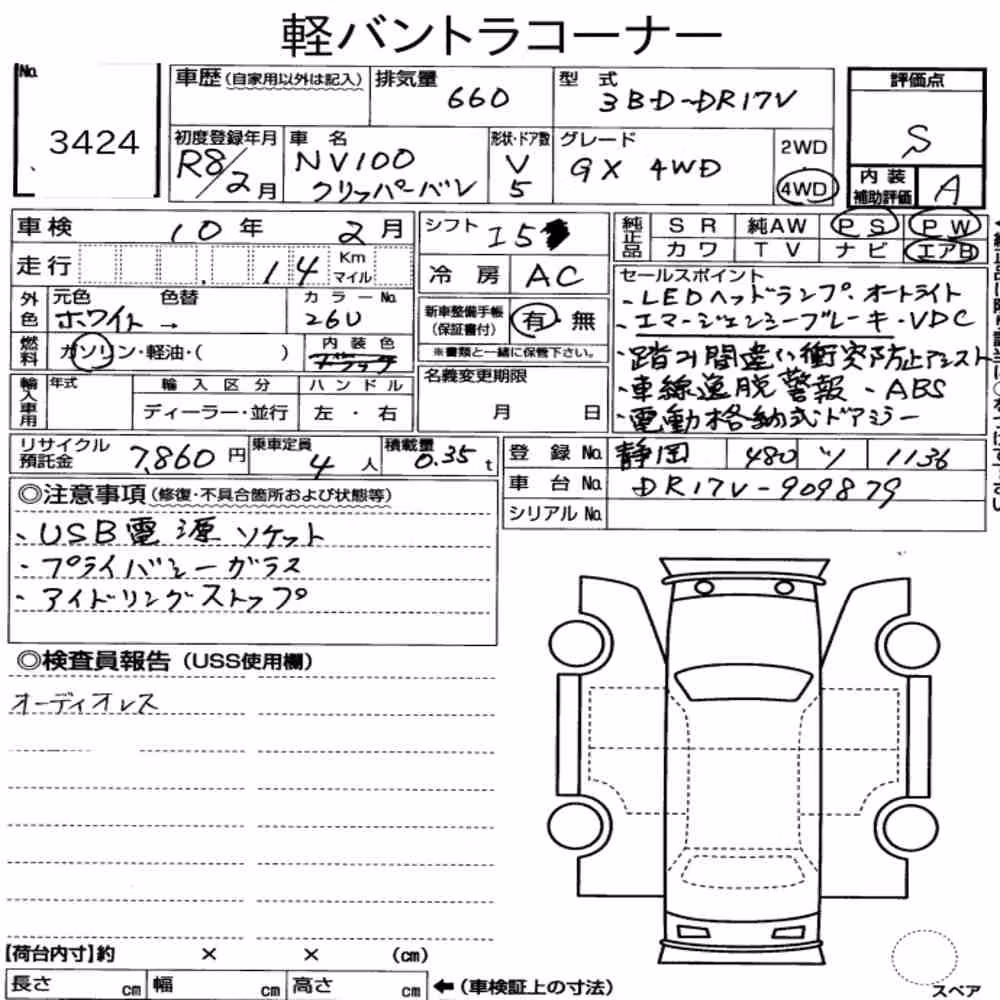 軽バントラコーナー
No. 3424
車歴(自家用以外は記入) 排気量 660 型式 3BD-DR17V
評価点 S
初度登録年月 R8/2月 車名 NV100 クリッパーバン 形状・ドア数 V 5 グレード GX 4WD 2WD 4WD
内装補助評価 A
車検 10年 2月 シフト I5
走行 14 Km マイル 冷房 AC
純正品 SR 純AW PS PW
カワ TV ナビ エアB
外色 元色 ホワイト → 色替 カラーNo. 26U
新車整備手帳(保証書付) 有・無
※書類と一緒に保管下さい。
燃料 ガソリン・軽油・( ) 内装色 ブラック
名義変更期限 月 日
輸入車用 年式 輸入区分 ハンドル
ディーラー・並行 左・右
セールスポイント
・LEDヘッドランプ・オートライト
・エマージェンシーブレーキ・VDC
・踏み間違い衝突防止アシスト
・車線逸脱警報・ABS
・電動格納式ドアミラー
リサイクル預託金 7,860円 乗車定員 4人 積載量 0.35t
登録No. 静岡 480 ツ 1136
車台No. DR17V-909879
シリアルNo.
◎注意事項(修復・不具合箇所および状態等)
・USB電源ソケット
・プライバシーガラス
・アイドリングストップ
◎検査員報告(USS使用欄)
オーディオレス
【荷台内寸】約 × × (cm)
長さ cm 幅 cm 高さ cm ←(車検証上の寸法)
スペア